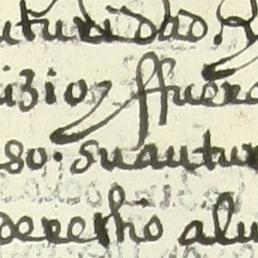 uturidad R
uizio ffuero
so. su autur
derecho alu